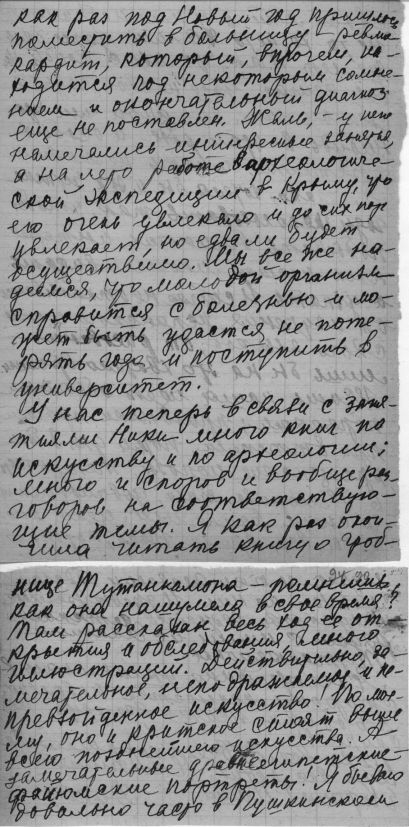 как раз под Новый год пришлось
поместить в больницу – ревмо-
кардит, который, впрочем, на-
ходится под некоторым сомне-
нием и окончательный диагноз
еще не поставлен. Жаль, – у него
намечались интересные занятия,
а на лето работе в археологиче-
ской экспедиции в Крыму, что
его очень увлекало и до сих пор
увлекает, но едва ли будет
осуществимо. Мы все же на-
деемся, что молодой организм
справится с болезнью и мо-
жет быть удастся не поте-
рять года и поступить в
университет.
У нас теперь в связи с заня-
тиями Ники много книг по
искусству и по археологии;
много и споров и вообще раз-
говоров на соответствую-
щие темы. Я как раз окон-
чила читать книгу о гроб-
нице Тутанкамона – помнишь,
как она нашумела в свое время?
Там рассказан весь ход ее от-
крытия и обследования, много
иллюстраций. Действительно, за-
мечательное, неподражаемое и не-
превзойденное искусство! По мое-
му, оно и критское стоят выше
всего позднейшего искусства. А
замечательные древнеегипетские –
фаюмские портреты! Я бываю
довольно часто в Пушкинском